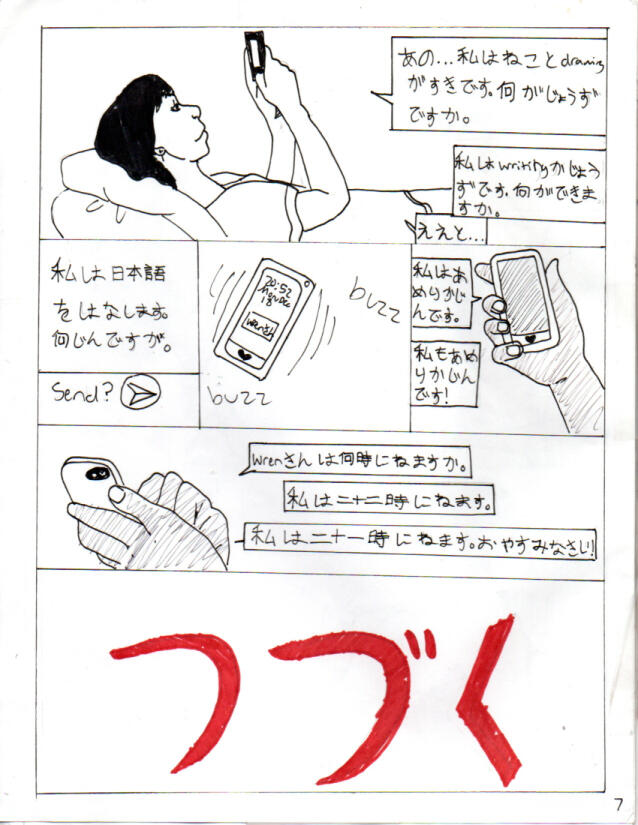 あの...私はねことdrawing
がすきです。何がじょうず
ですか。
私はwritingがじょう
ずです。何ができま
すか。
ええと...
私は日本語
をはなします。
何じんですが。
Send?
20:52
Mon Dec
18
wrenさん
buzz
buzz
私はあ
めりかじ
んです。
私もあめ
りかじん
です!
wrenさんは何時にねますか。
私は二十二時にねます。
私は二十一時にねます。おやすみなさい!
つづく
7